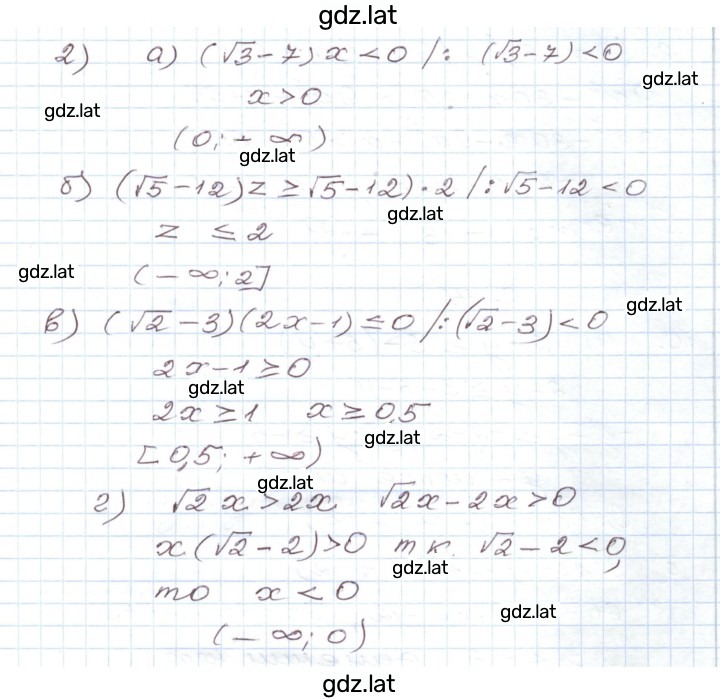 gdz.lat
2) а) (√3-7)x<0 /: (√3-7)<0
gdz.lat
x>0
gdz.lat
(0;+∞)
gdz.lat
б) (√5-12)z≥√5-12)·2 /:√5-12<0
gdz.lat
z ≤2
gdz.lat
(-∞;2]
gdz.lat
в) (√2-3)(2x-1)≤0 /:(√2-3)<0
2x-1≥0
gdz.lat
2x≥1 x≥0,5
gdz.lat
[0,5; +∞)
gdz.lat
г) √2x>2x √2x-2x>0
x(√2-2)>0 т к. √2-2<0,
gdz.lat
то x<0
gdz.lat
(-∞; 0)
gdz.lat